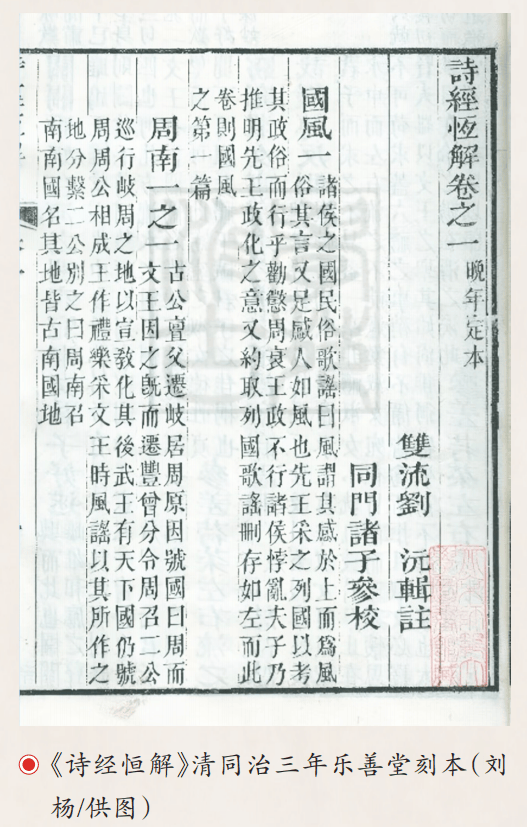 詩經恆解卷之一　晚年定本
雙流劉　沅輯註
同門諸子參校
國風一　諸侯之國民俗歌謠曰風謂其感於上而爲風
俗其言又足感人如風也先王采之列國以考
其政俗而行乎勸懲周衰王政不行諸侯悖亂夫子乃
推明先王政化之意又約取列國歌謠刪存如左而此
卷則國風
之第一篇
周南一之一　古公亶父遷岐居周原因號國曰周而
文王因之旣而遷豐曾分令周召二公
巡行岐周之地以宣教化其後武王有天下國仍號
周周公相成王作禮樂采文王時風謠以其所作之
地分繫二公別之曰周南召
南南國名其地皆古南國地
《诗经恒解》清同治三年乐善堂刻本(刘
杨/供图)